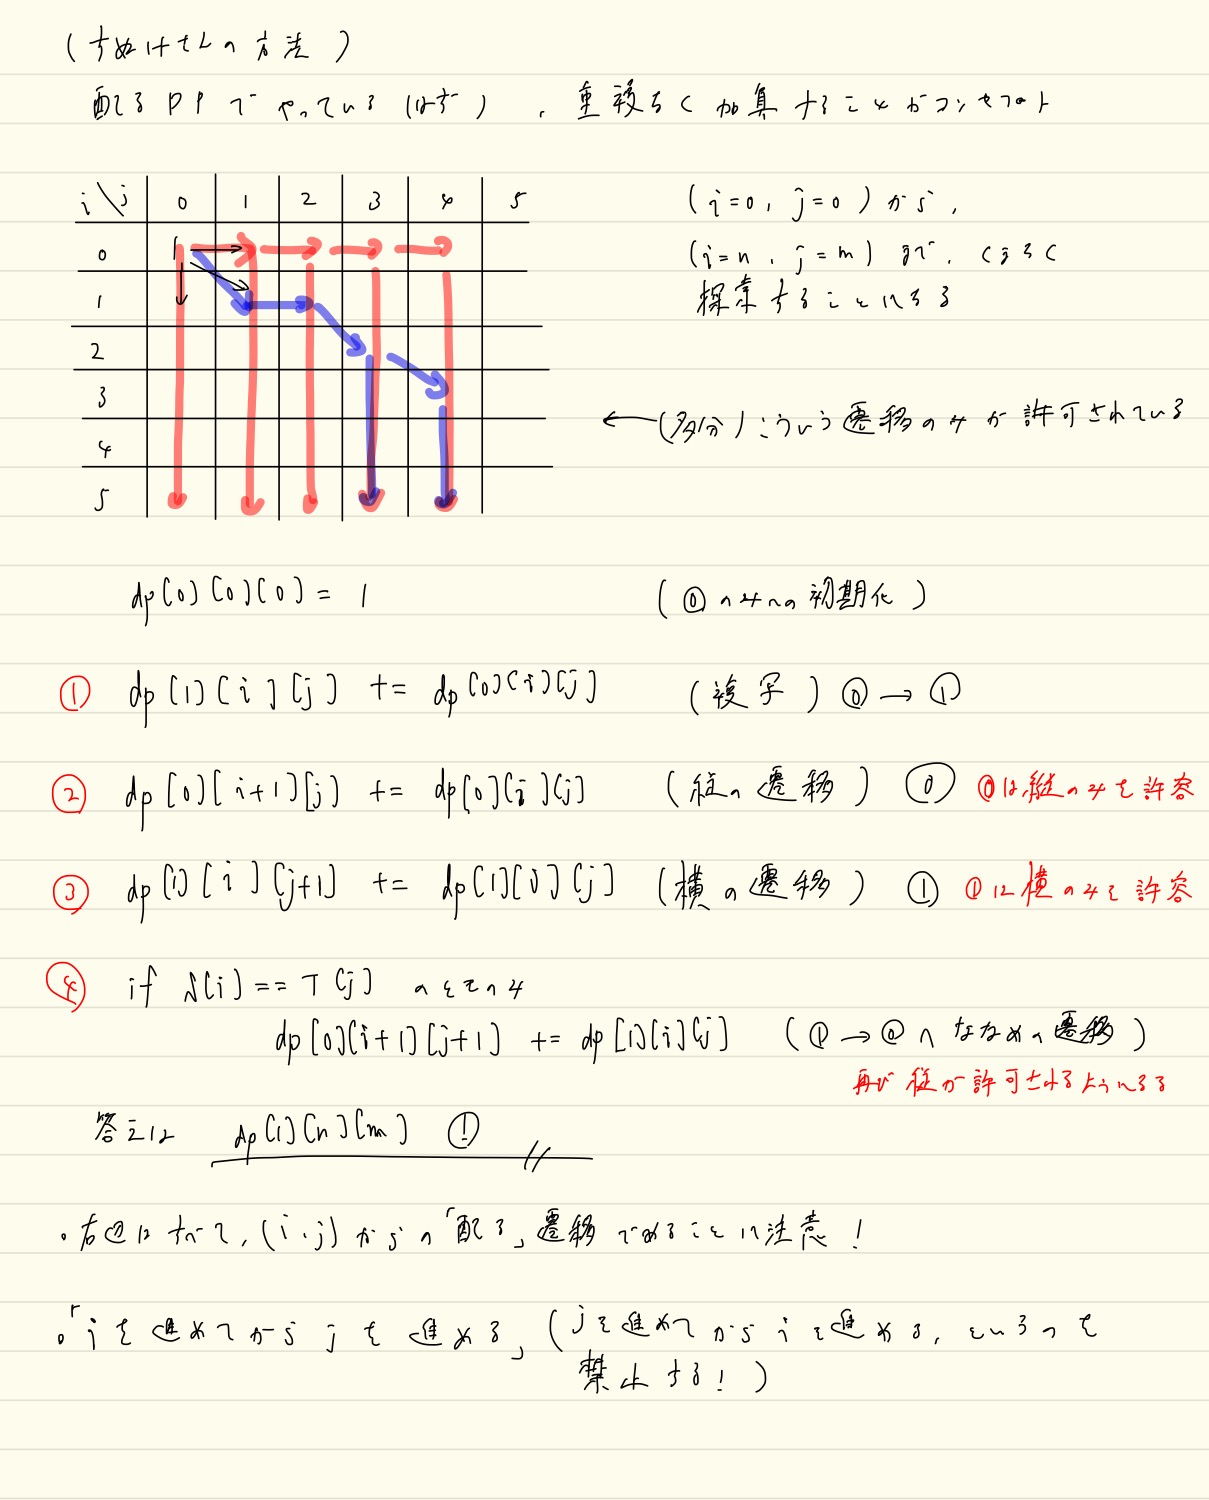 (すぬけさんの方法)
配るDPでやっている(はず)、重複なく加算することがコンセプト
i\j 0 1 2 3 4 5
0 1
1
2
3
4
5
(i=0, j=0)から、
(i=n, j=m)まで、くまなく
探索することになる
←(多分)こういう遷移のみが許可されている
dp[0][0][0] = 1 (⓪のみへの初期化)
① dp[1][i][j] += dp[0][i][j] (複写) ⓪→①
② dp[0][i+1][j] += dp[0][i][j] (縦の遷移) ⓪ ⓪は縦のみを許容
③ dp[1][i][j+1] += dp[1][i][j] (横の遷移) ① ①は横のみを許容
④ if S[i] == T[j] のときのみ
dp[0][i+1][j+1] += dp[1][i][j] (①→⓪へななめの遷移)
再び縦が許可されるようになる
答えは dp[1][n][m] ①
・右辺はすべて、(i,j)からの「配る」遷移であることに注意!
・「iを進めてからjを進める」(jを進めてからiを進める、というのを
禁止する!)